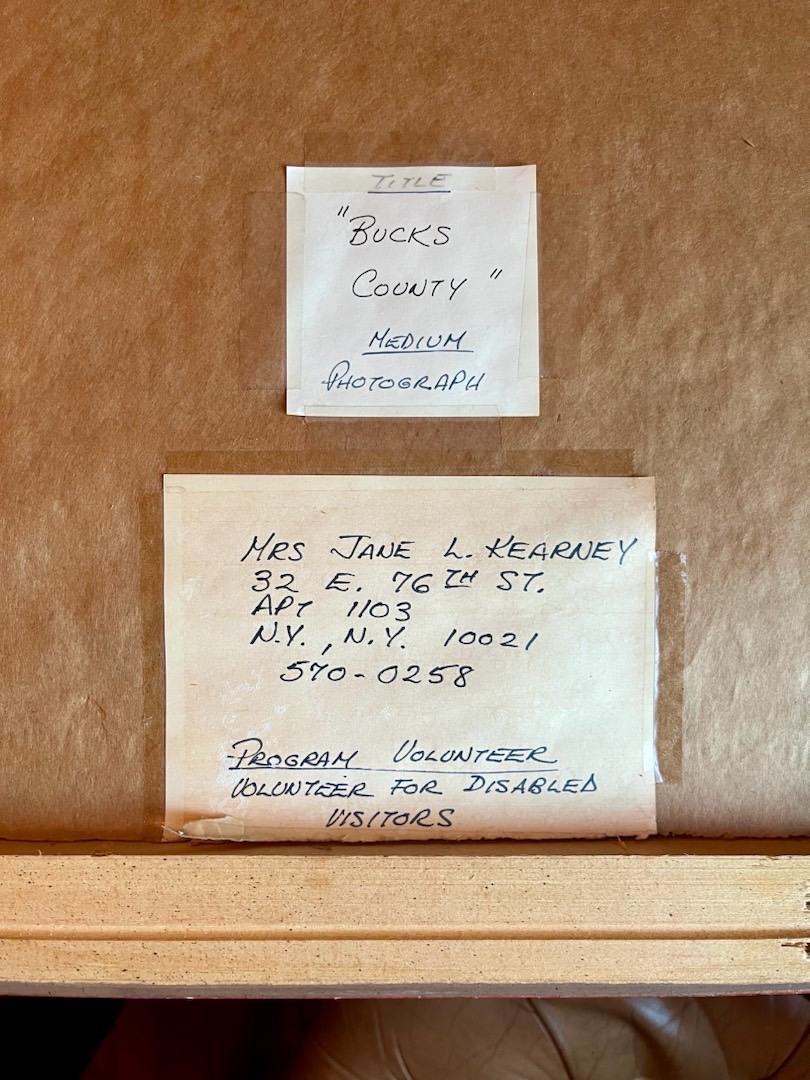 TITLE
"BUCKS
COUNTY"
MEDIUM
PHOTOGRAPH
MRS JANE L. KEARNEY
32 E. 76TH ST.
APT 1103
N.Y., N.Y. 10021
570-0258
PROGRAM VOLUNTEER
VOLUNTEER FOR DISABLED
VISITORS